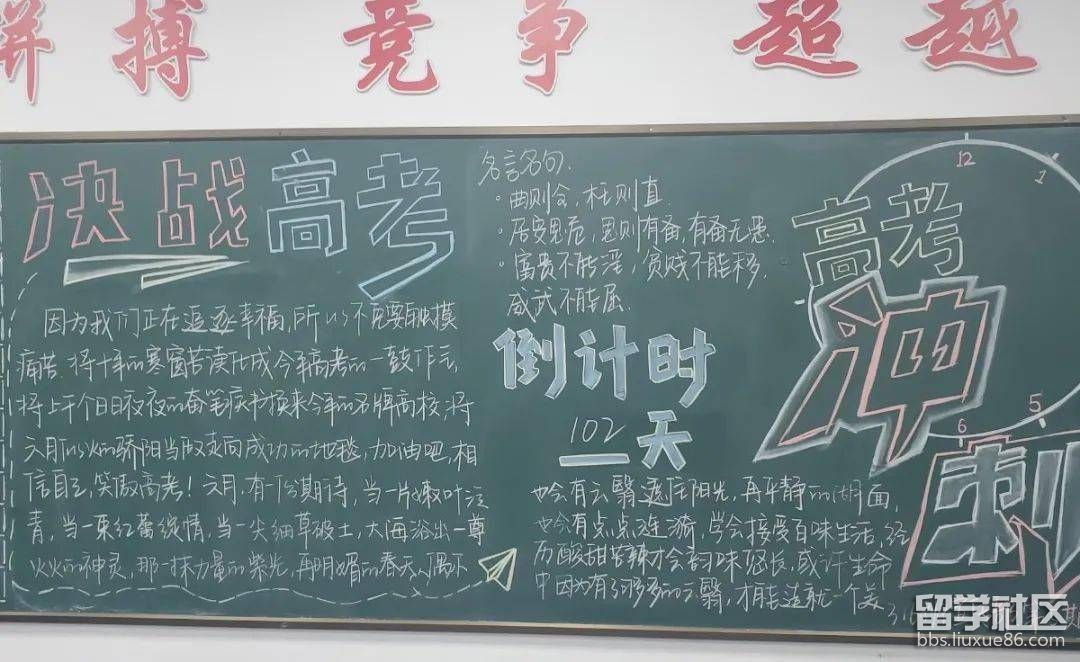 拼搏 竞争 超越
决战高考
因为我们正在追逐幸福,所以不
痛苦.将十年的寒窗苦读化成今年高考的一鼓作气,
将上千个日日夜夜的奋笔疾书换来今年的名牌高校;将
六月的火的骄阳当做走向成功的地毯,加油吧,相
信自己,笑傲高考!六月,有一份期待,当一片嫩叶泛
青,当一束红蕾绽情,当一尖细草破土,大海浴出一尊
火火的神灵,那一抹力量的紫光,再明媚的春天,偶尔
名言名句.
·曲则全,枉则直.
·居安思危,思则有备,有备无患.
·富贵不能淫,贫贱不能移,
威武不能屈.
倒计时
102天
也会有云翳遮住阳光,再平静的湖面,
也会有点点涟漪,学会接受百味生活,经
历酸甜苦辣才会韵味悠长,或许生命
中因为有了多多的云翳,才能造就一个美
12
1
5
6
高考
冲刺
留学社区
bbs.liuxue86.com